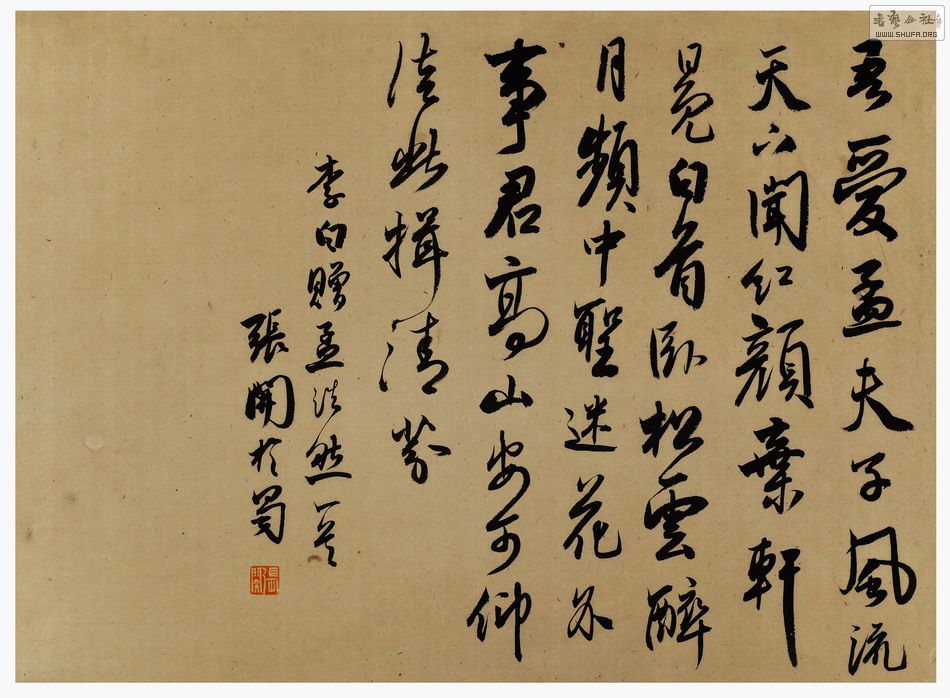 吾愛孟夫子風流
天下聞紅顏棄軒
冕白首臥松雲醉
月頻中聖迷花不
事君高山安可仰
從此揖清芬
李白贈孟浩然一首
張開於蜀
書藝公社
WWW.SHUFA.ORG